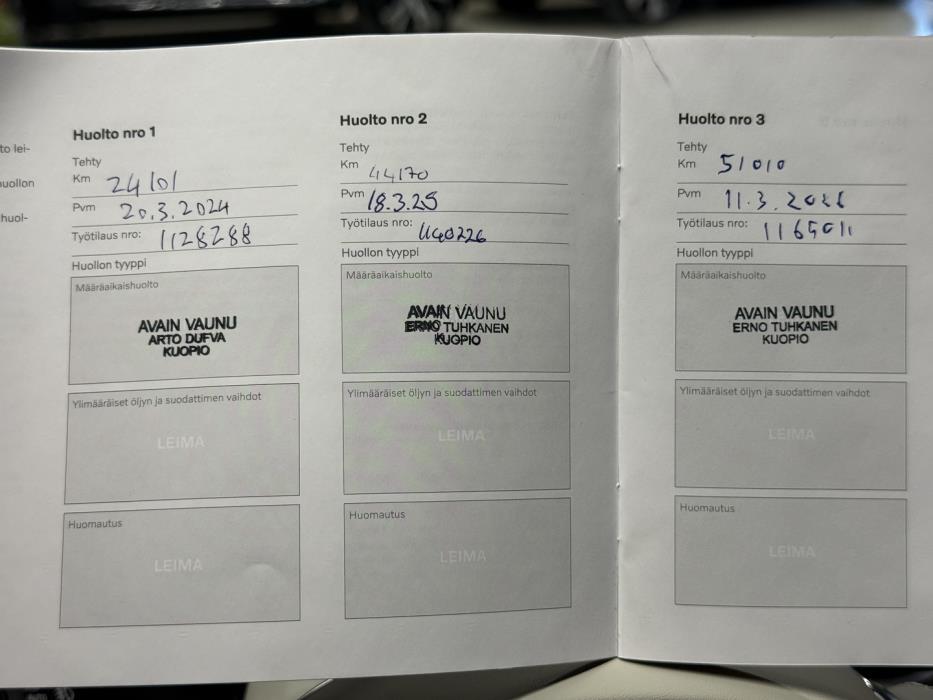 to lei-
uollon
huol-
Huolto nro 1
Tehty
Km 24101
Pvm 20.3.2024
Työtilaus nro: 1128288
Huollon tyyppi
Määräaikaishuolto
AVAIN VAUNU
ARTO DUFVA
KUOPIO
Ylimääräiset öljyn ja suodattimen vaihdot
LEIMA
Huomautus
LEIMA
Huolto nro 2
Tehty
Km 44170
Pvm 18.3.25
Työtilaus nro: 1140226
Huollon tyyppi
Määräaikaishuolto
AVAIN VAUNU
ERNO TUHKANEN
KUOPIO
Ylimääräiset öljyn ja suodattimen vaihdot
LEIMA
Huomautus
LEIMA
Huolto nro 3
Tehty
Km 51010
Pvm 11.3.
Työtilaus nro:
Huollon tyyppi
Määräaikaishuolto
AVAIN VAUNU
ERNO TUHKANEN
KUOPIO
Ylimääräiset öljyn ja suodattimen vaihdot
LEIMA
Huomautus
LEIMA